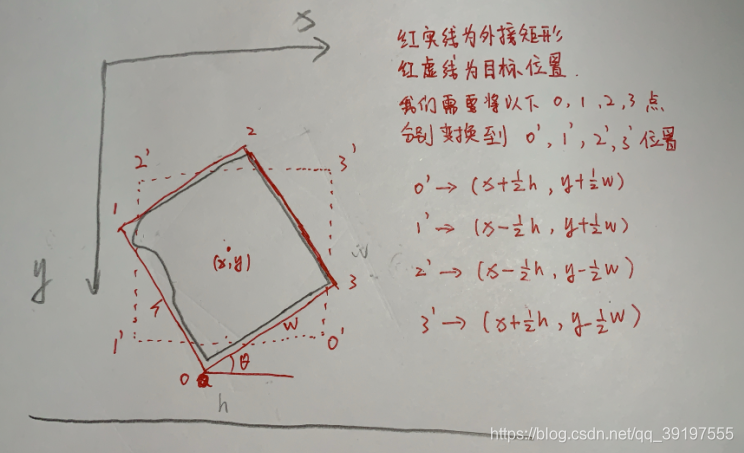 红实线为外接矩形
红虚线为目标位置.
我们需要将以下 0, 1, 2, 3 点
分别变换到 0', 1', 2', 3' 位置
0' → (x+½h, y+½w)
1' → (x-½h, y+½w)
2' → (x-½h, y-½w)
3' → (x+½h, y-½w)
x
y
2
2'
3'
1
(x,y)
3
w
1'
0'
θ
0
h
https://blog.csdn.net/qq_39197555